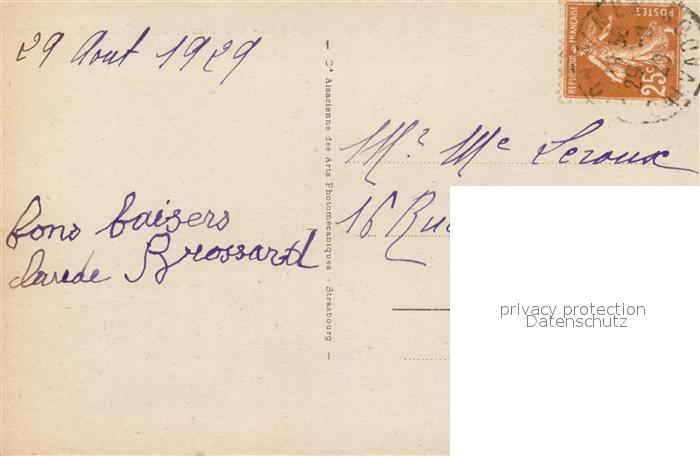 29 Aout 1929
bons baisers
Claude Brossard
Cie Alsacienne des Arts Photomécaniques - Strasbourg
RÉPUBLIQUE FRANÇAISE
POSTES
25c
Mr Me Leroux
16 Rue
privacy protection
Datenschutz